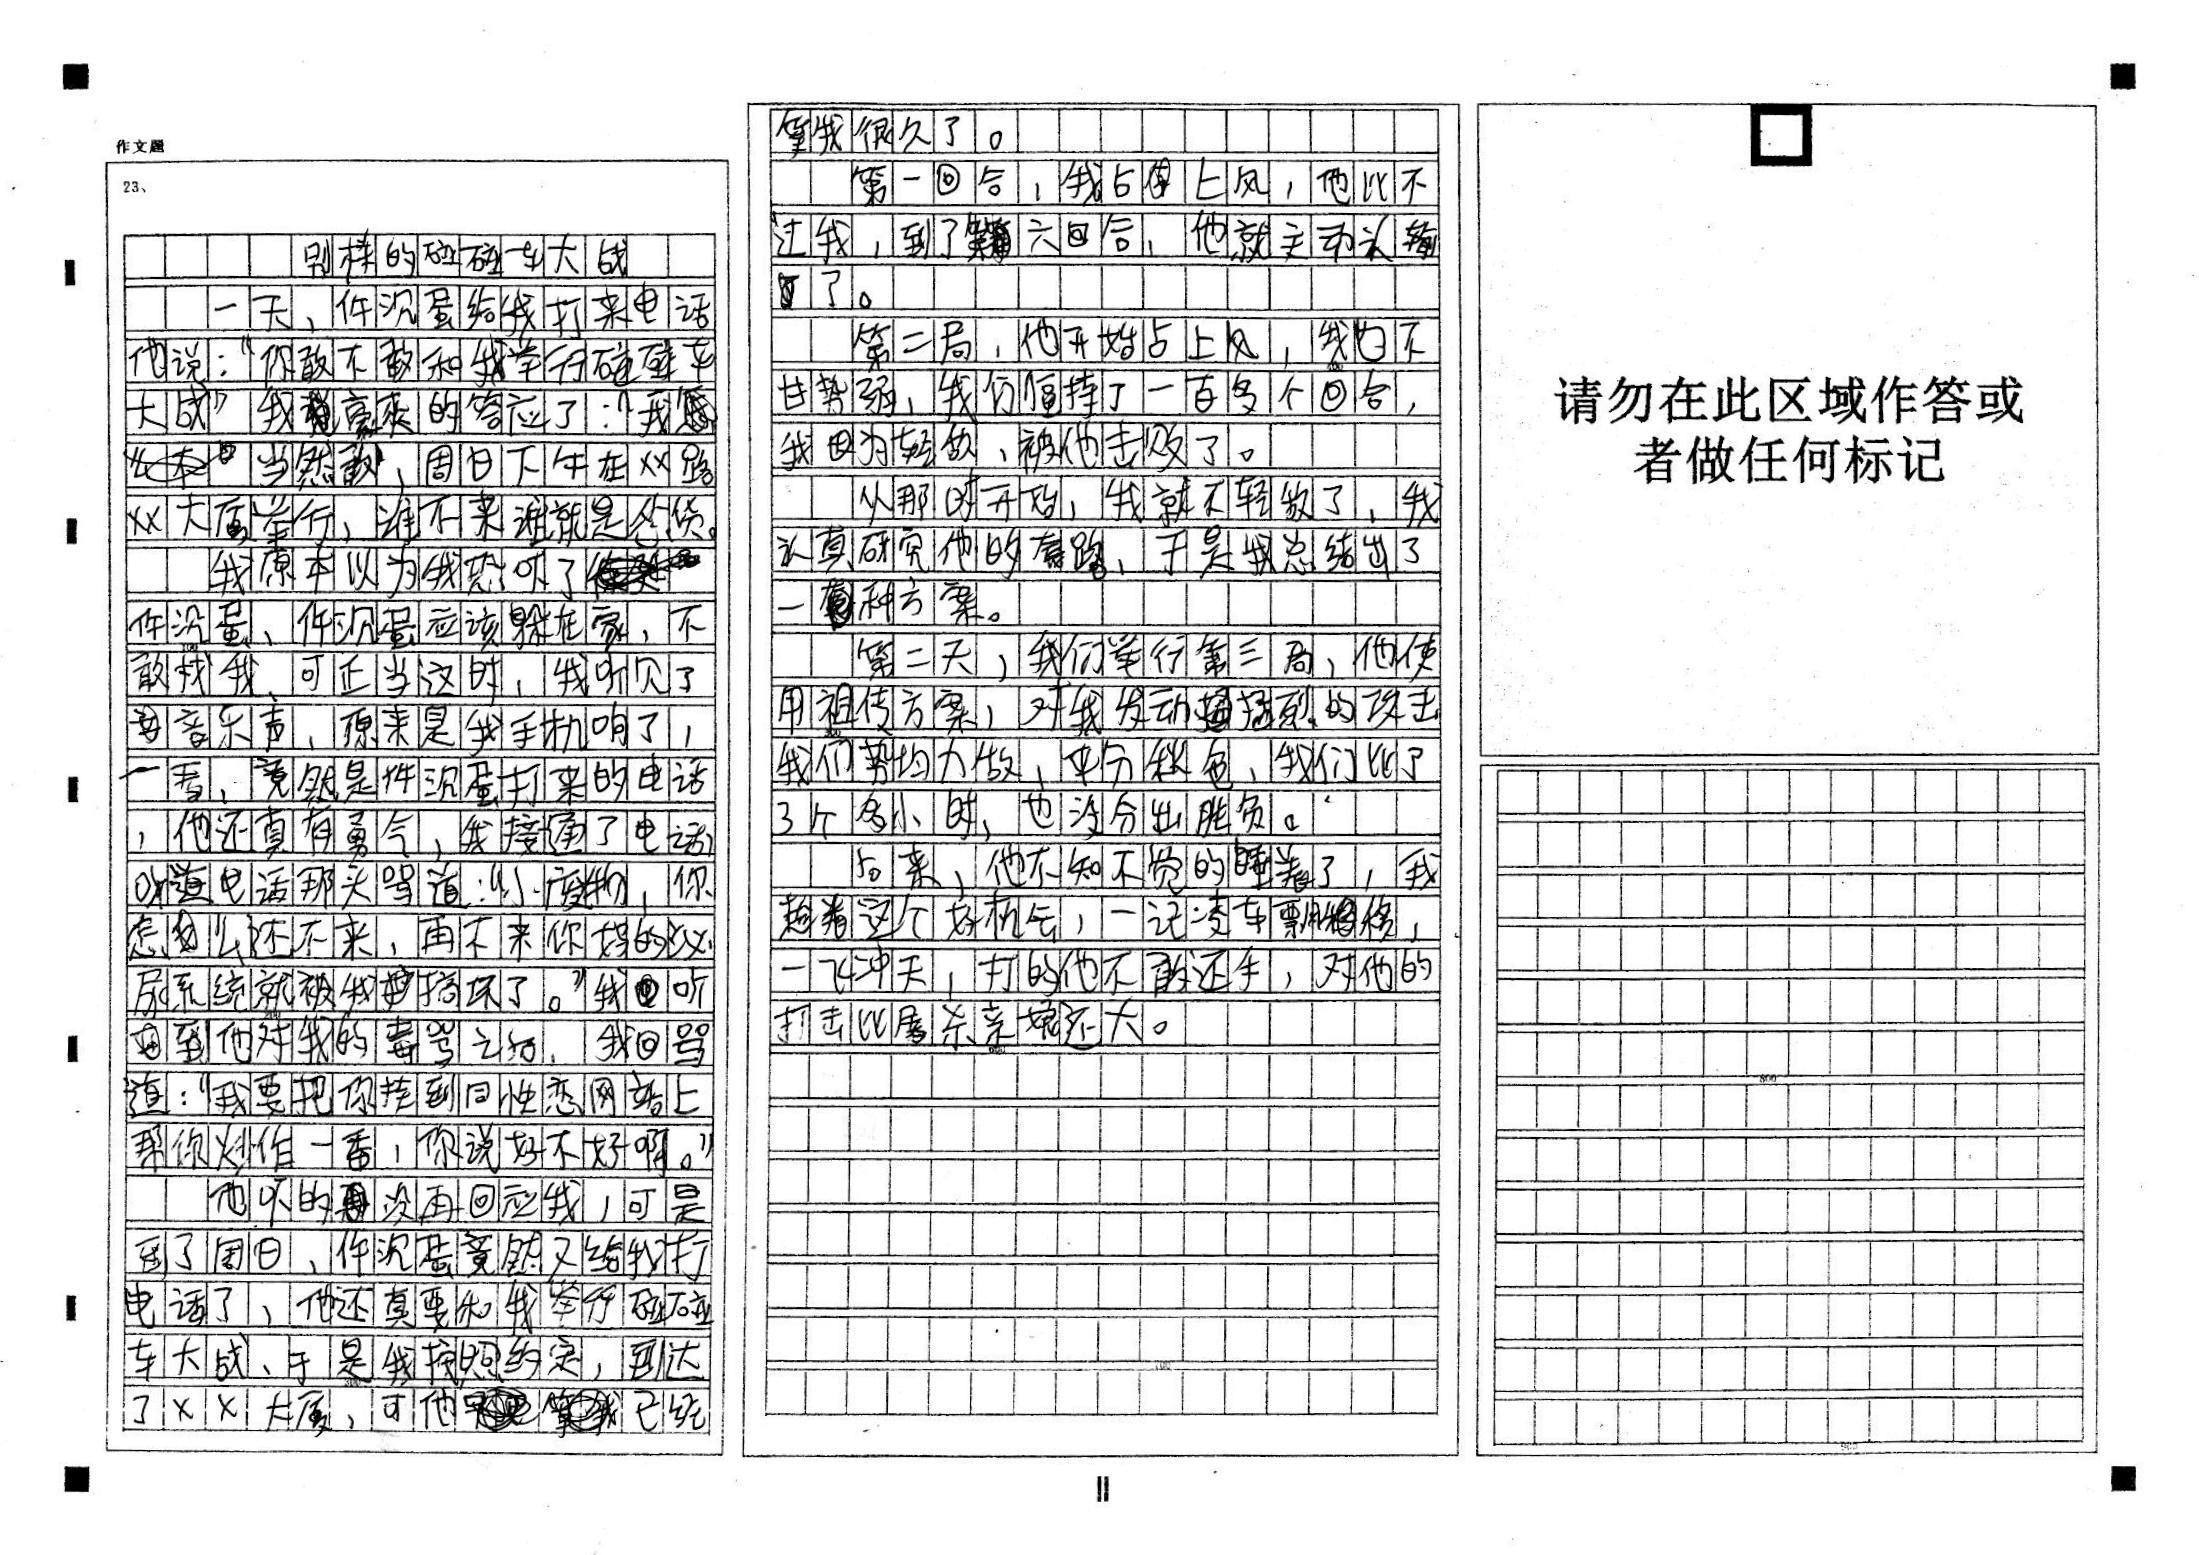 作文题
23、
别样的碰碰车大战
一天，件沉蛋给我打来电话
他说：“你敢不敢和我举行碰碰车
大战”我豪爽的答应了：“我
当然敢，周日下午在××路
××大厦举行，谁不来谁就是怂货。
我原本以为我恐吓了
件沉蛋、件沉蛋应该躲在家，不
敢找我、可正当这时，我听见了
音乐声，原来是我手机响了，
一看，竟然是件沉蛋打来的电话
，他还真有勇气，我接通了电话，
电话那头骂道：“小废物，你
怎么还不来，再不来你妈的
尿系统就被我搞坏了。”我听
到他对我的毒骂之后，我回骂
道：“我要把你挂到同性恋网站上
帮你炒作一番，你说好不好啊。”
他吓的没再回应我，可是
到了周日，件沉蛋竟然又给我打
电话了，他还真要和我举行碰碰
车大战、于是我按照约定，到达
了××大厦，可他已经
等我很久了。
第一回合，我占上风，他比不
过我，到了第六回合，他就主动认输
了。
第二局，他开始占上风，我自不
甘势弱，我们僵持了一百多个回合，
我因为轻敌，被他击败了。
从那时开始，我就不轻敌了，我
认真研究他的套路，于是我总结出了
一种方案。
第二天，我们举行第三局，他使
用祖传方案，对我发动猛烈的攻击
我们势均力敌，平分秋色，我们比了
3个多小时，也没分出胜负。
后来，他不知不觉的睡着了，我
趁着这个好机会，一记凌车飘移，
一飞冲天，打的他不敢还手，对他的
打击比屠杀亲娘还大。
请勿在此区域作答或
者做任何标记
800
700
900
II